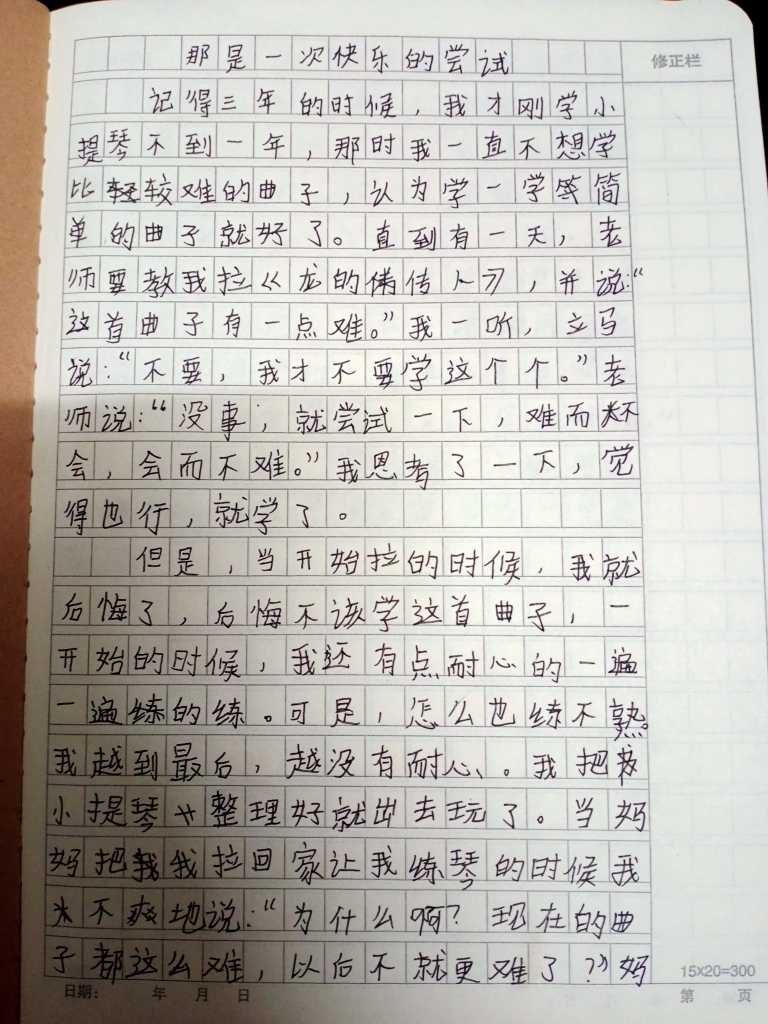 那是一次快乐的尝试
修正栏
记得三年的时候，我才刚学小
提琴不到一年，那时我一直不想学
比较难的曲子，认为学一学简
单的曲子就好了。直到有一天，老
师要教我拉《龙的传人》，并说：“
这首曲子有一点难。”我一听，立马
说：“不要，我才不要学这个个。”老
师说：“没事，就尝试一下，难而不
会，会而不难。”我思考了一下，觉
得也行，就学了。
但是，当开始拉的时候，我就
后悔了，后悔不该学这首曲子，一
开始的时候，我还有点耐心的一遍
一遍练的练。可是，怎么也练不熟。
我越到最后，越没有耐心、。我把
小提琴整理好就出去玩了。当妈
妈把我拉回家让我练琴的时候我
不爽地说：“为什么啊？现在的曲
子都这么难，以后不就更难了？”妈
15×20=300
日期： 年 月 日 第 页